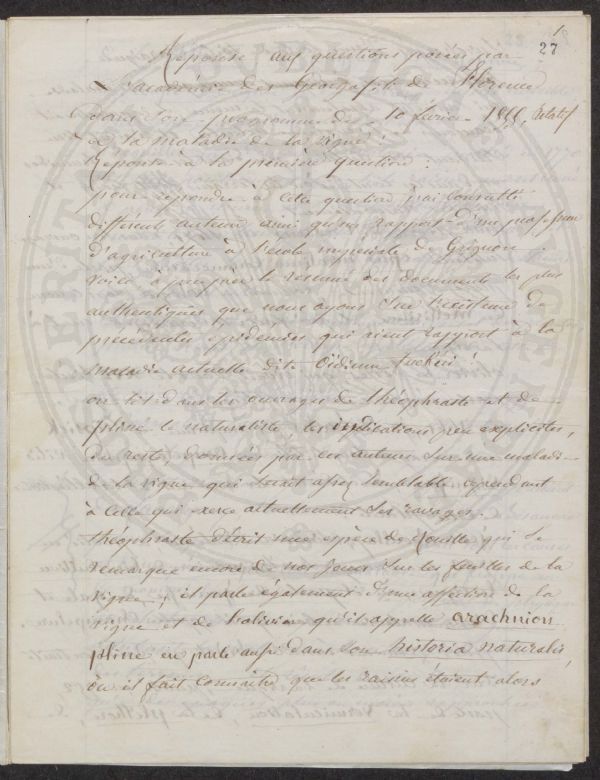 1
27
Réponse aux questions posées par
l'académie des Georgofili de Florence
dans son programme du 10 février 1888, relatif
à la maladie de la vigne.
Réponse à la première question :
pour répondre à cette question j'ai consulté
différents auteurs ainsi qu'un rapport d'un professeur
d'agriculture à l'école impériale de Grignon.
voici à peu près le résumé des documents les plus
authentiques que nous ayons sur l'existence de
précédentes épidémies qui aient rapport à la
maladie actuelle dite Oïdium Tuckéri !
on lit dans les ouvrages de théophraste et de
pline le naturaliste les indications peu explicites,
du reste, données par ces auteurs sur une maladie
de la vigne qui serait assez semblable cependant
à celle qui exerce actuellement ses ravages.
théophraste décrit une espèce de rouille qui se
remarque encore de nos jours sur les feuilles de la
vigne ; il parle également d'une affection de la
vigne et de l'olivier qu'il appelle arachnion
pline en parle aussi dans son historia naturalis
où il fait connaître que les raisins étaient alors